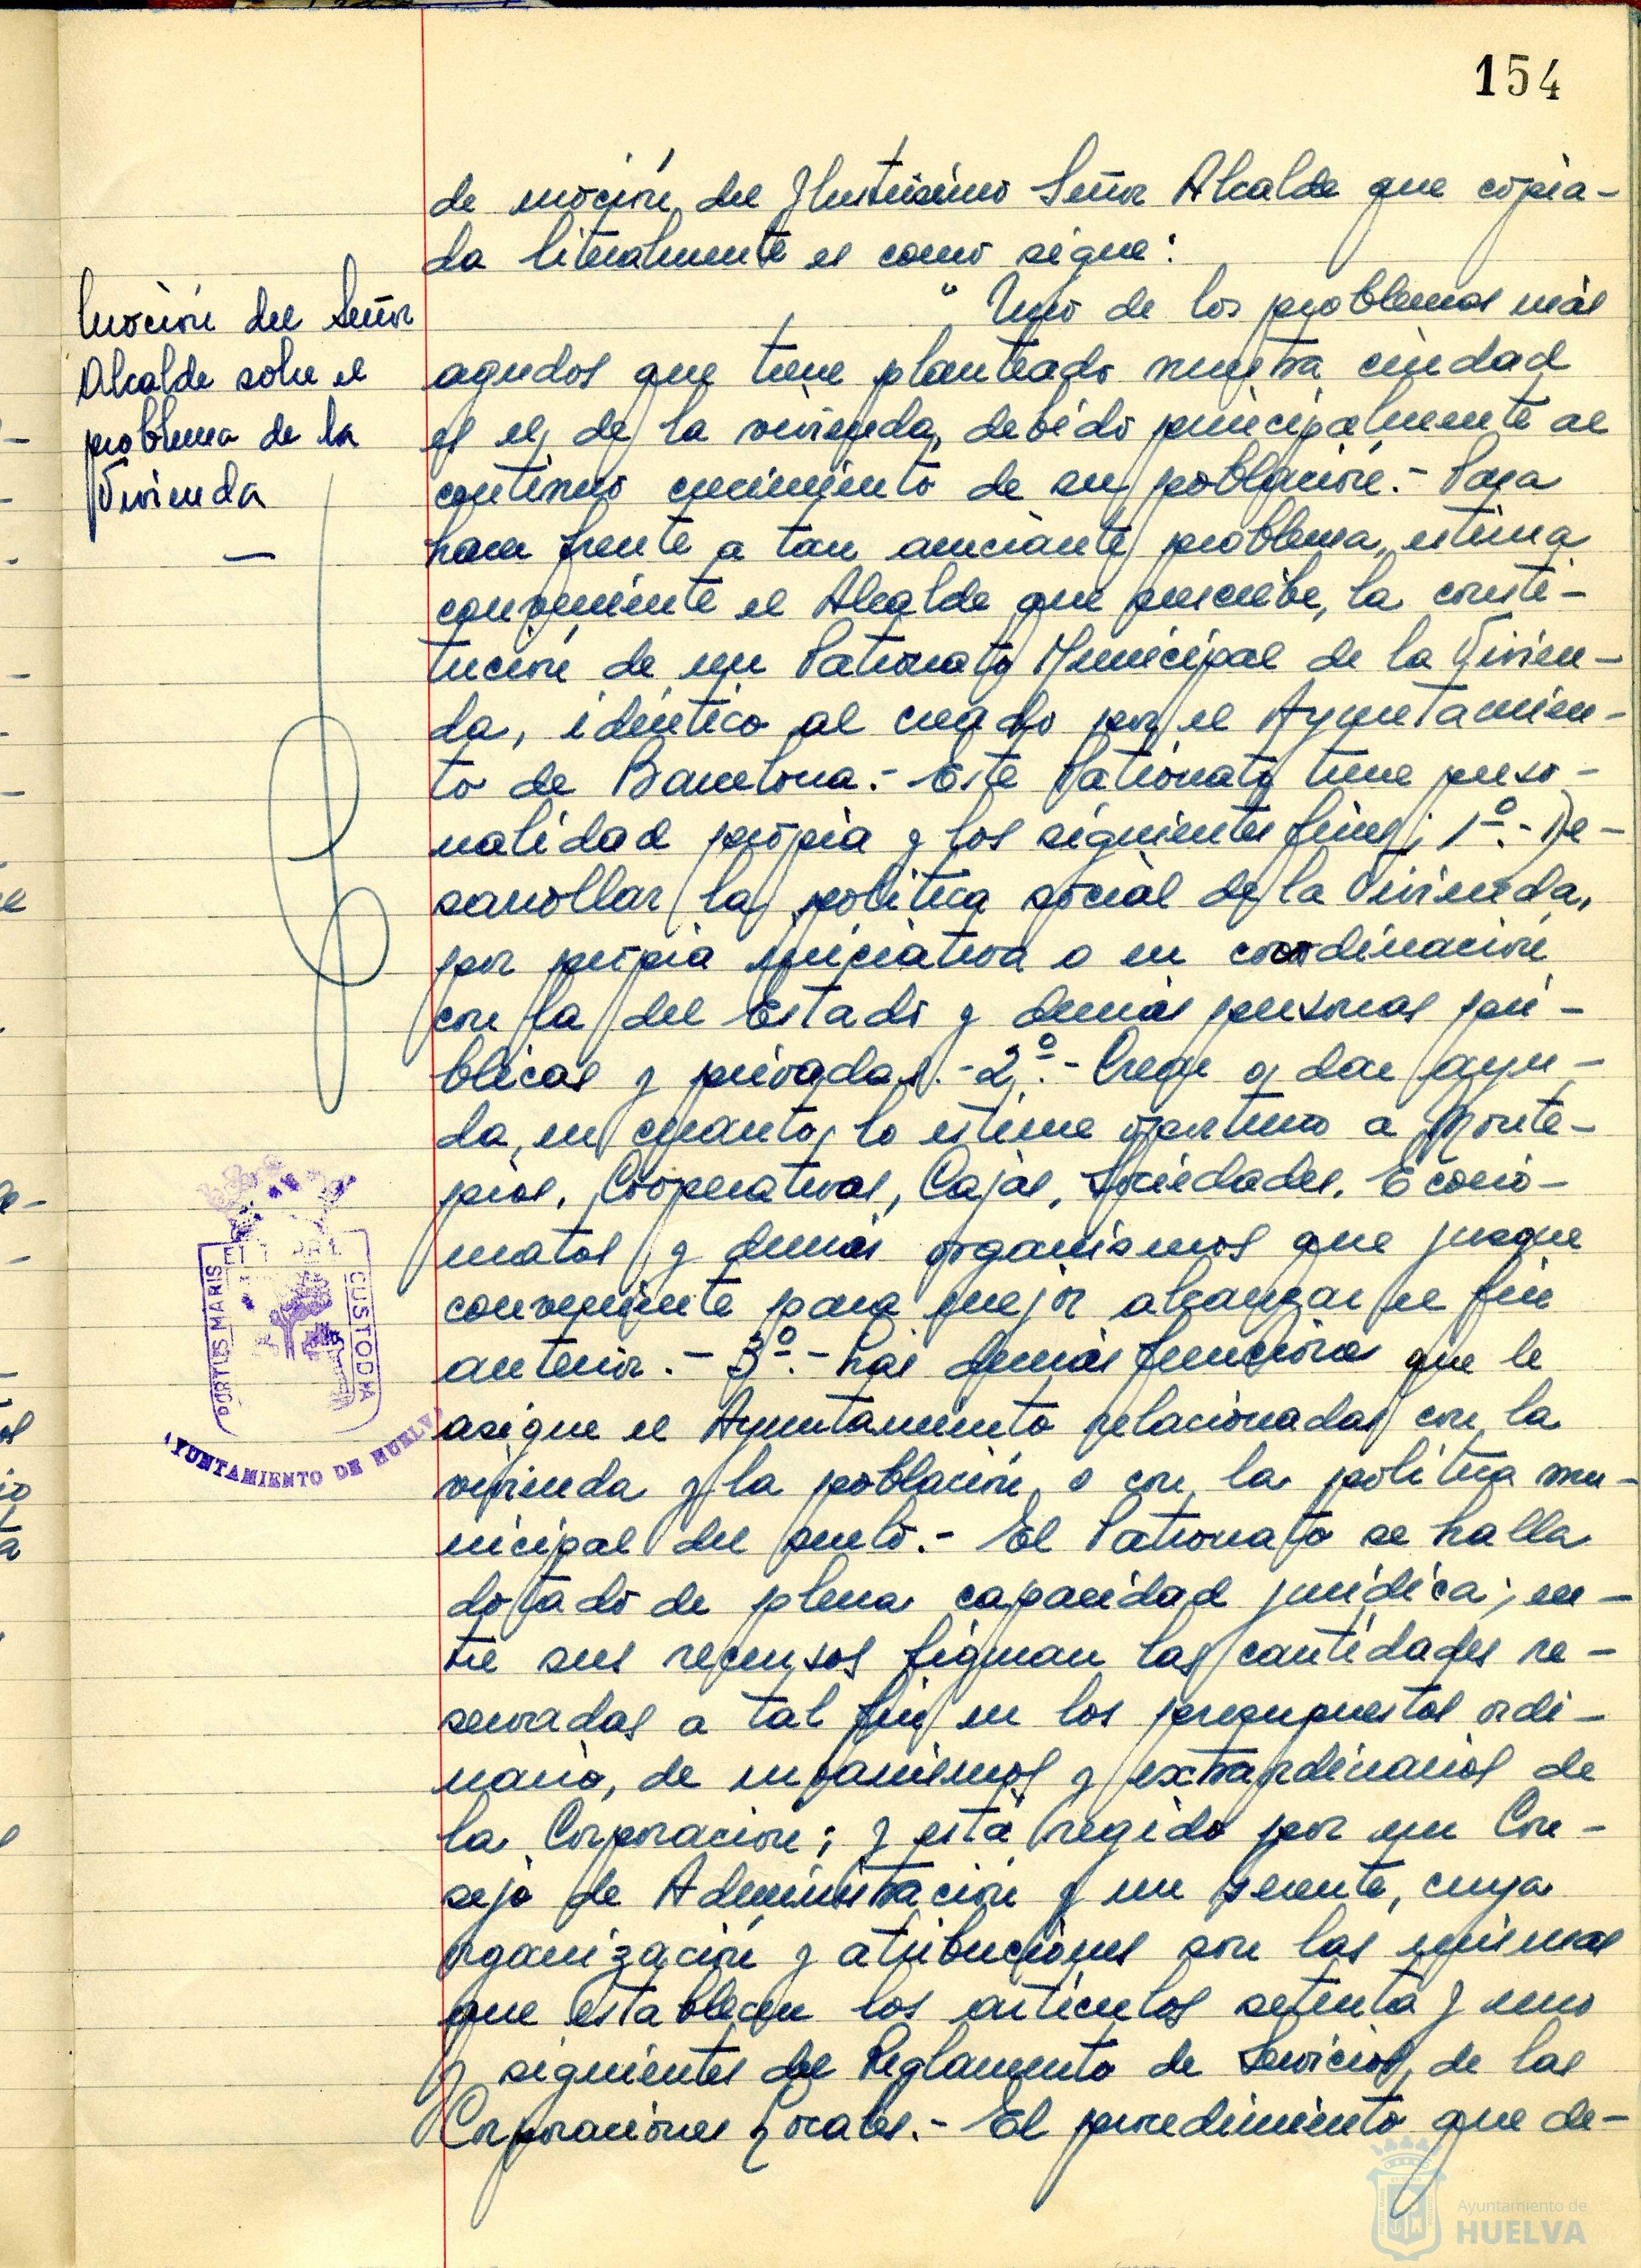 154
de moción del Ilustrísimo Señor Alcalde que copia-
da literalmente es como sigue:
Moción del Señor
Alcalde sobre el
problema de la
Vivienda
" Uno de los problemas más
agudos que tiene planteado nuestra ciudad
es el de la vivienda, debido principalmente al
continuo crecimiento de su población.- Para
hacer frente a tan acuciante problema, estima
conveniente el Alcalde que suscribe, la consti-
tución de un Patronato Municipal de la Vivien-
da, idéntico al creado por el Ayuntamien-
to de Barcelona.- Este Patronato tiene perso-
nalidad propia y los siguientes fines; 1º.- De-
sarrollar la política social de la Vivienda,
por propia iniciativa o en coordinación
con la del Estado y demás personas pú-
blicas y privadas.- 2º.- Crear o dar ayu-
da, en cuanto lo estime oportuno a Monte-
pios, Cooperativas, Cajas, Sociedades, Econo-
matos y demás organismos que juzgue
conveniente para mejor alcanzar el fin
anterior.- 3º.- Las demás funciones que le
asigne el Ayuntamiento relacionadas con la
vivienda y la población, o con la política mu-
nicipal del suelo.- El Patronato se halla
dotado de plena capacidad jurídica; en-
tre sus recursos figuran las cantidades re-
servadas a tal fin en los presupuestos ordi-
nario, de urbanismos y extraordinarios de
la Corporación; y está regido por un Con-
sejo de Administración y un Gerente, cuya
organización y atribuciones son las mismas
que establecen los artículos setenta y uno
y siguientes del Reglamento de Servicios de las
Corporaciones Locales.- El procedimiento que de-
PORTUS MARIS
CUSTODIA
AYUNTAMIENTO DE HUELVA
Ayuntamiento de
HUELVA